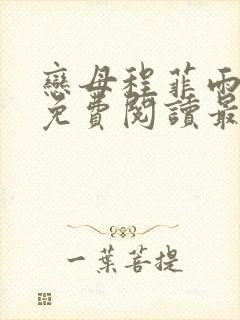 戀母程菲雨
免費閱讀最
一葉菩提